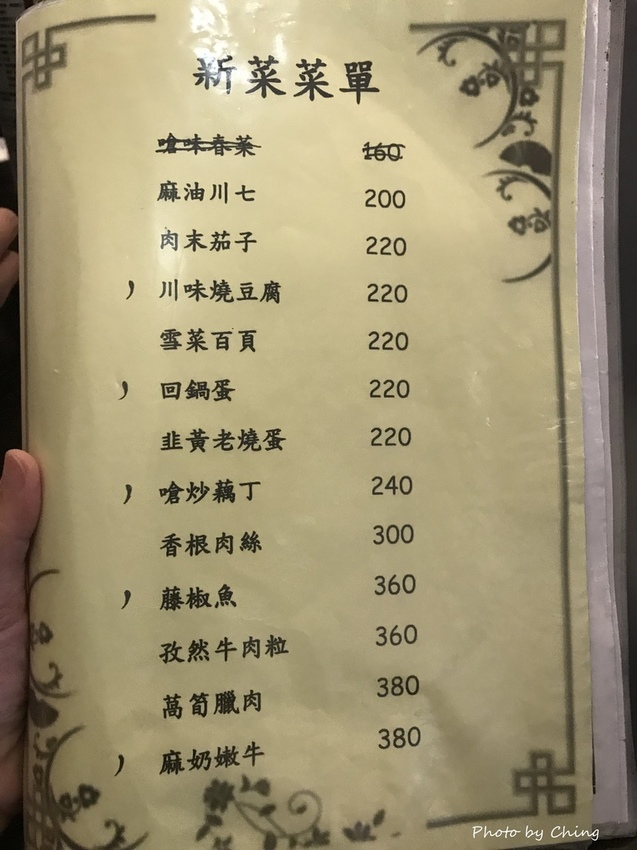 新菜菜單
嗆味春菜 160
麻油川七 200
肉末茄子 220
, 川味燒豆腐 220
雪菜百頁 220
, 回鍋蛋 220
韭黃老燒蛋 220
, 嗆炒藕丁 240
香根肉絲 300
, 藤椒魚 360
孜然牛肉粒 360
萵筍臘肉 380
, 麻奶嫩牛 380
Photo by Ching